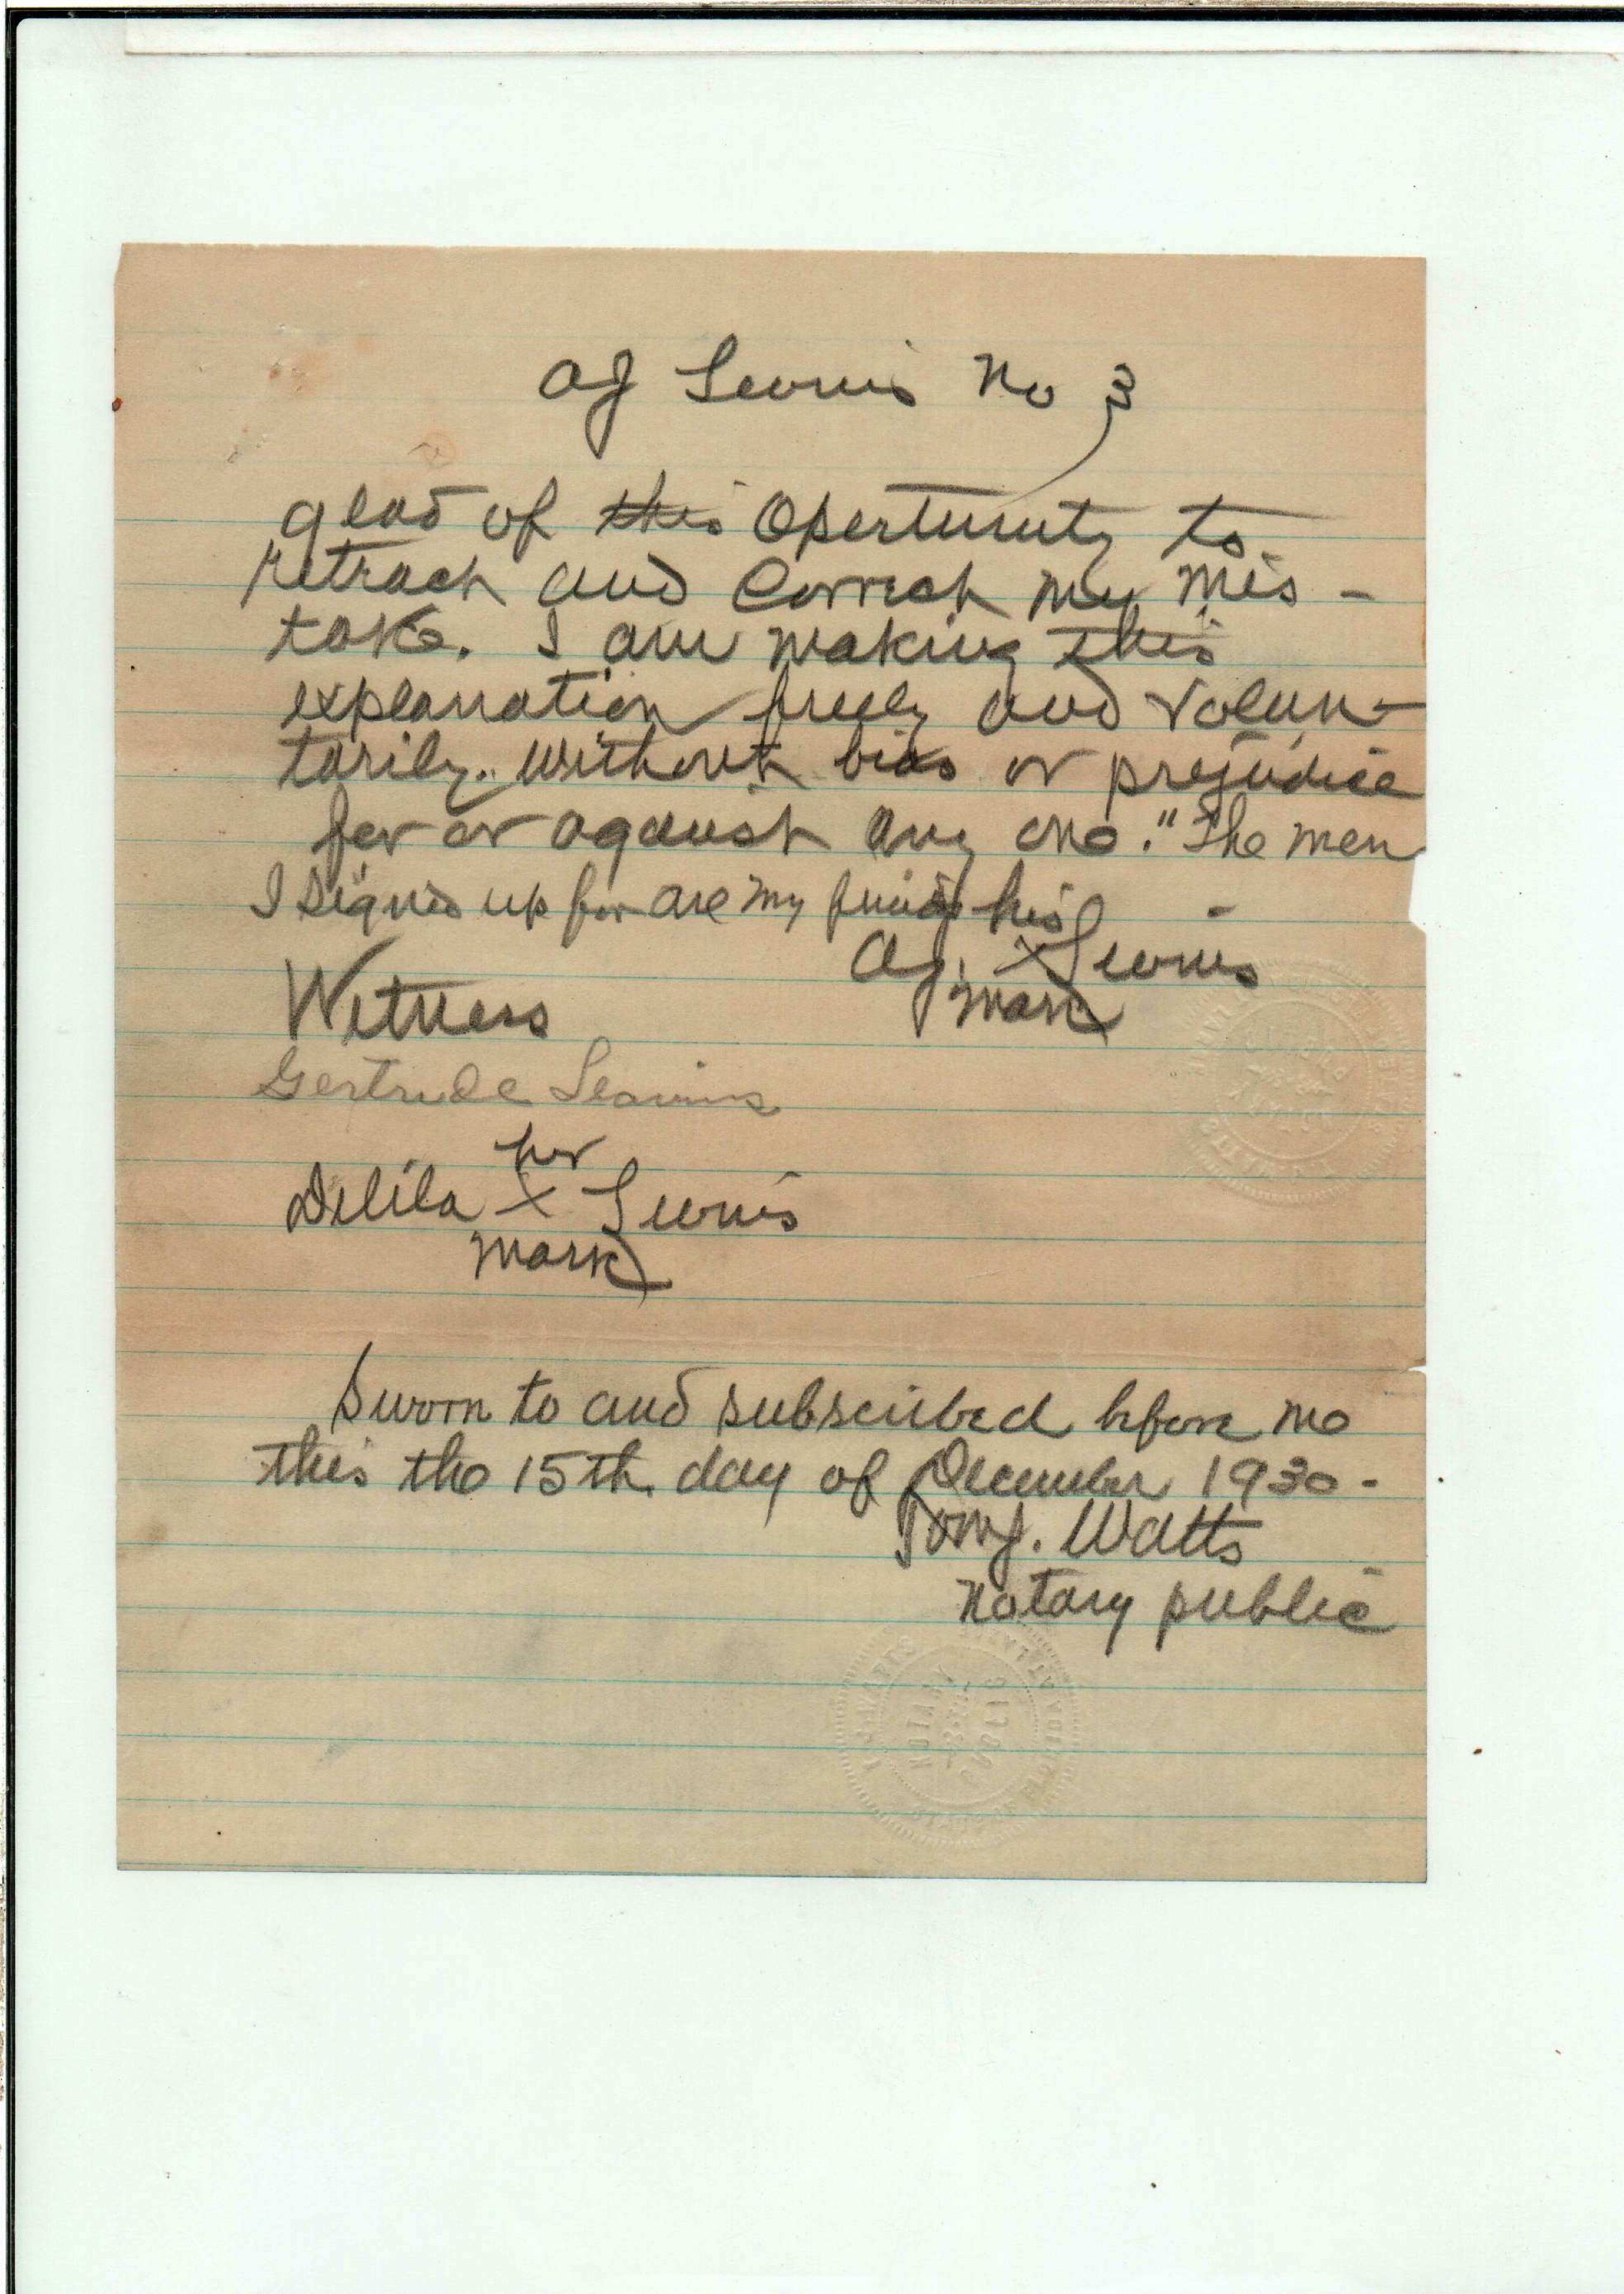 AJ Lewis No 3
glad of this Opertunity to
retract and Correct my Mis-
take. I am making this
explanation freely and volun-
tarily. without bias or prejudice
for or against any one." The men
I signed up for are my friends his
AJ. X Lewis
Mark
Witness
Gertrude
her
Delila X Lewis
Mark
Sworn to and subscribed before me
this the 15th day of December 1930-
Watts
Notary public
NOTARY